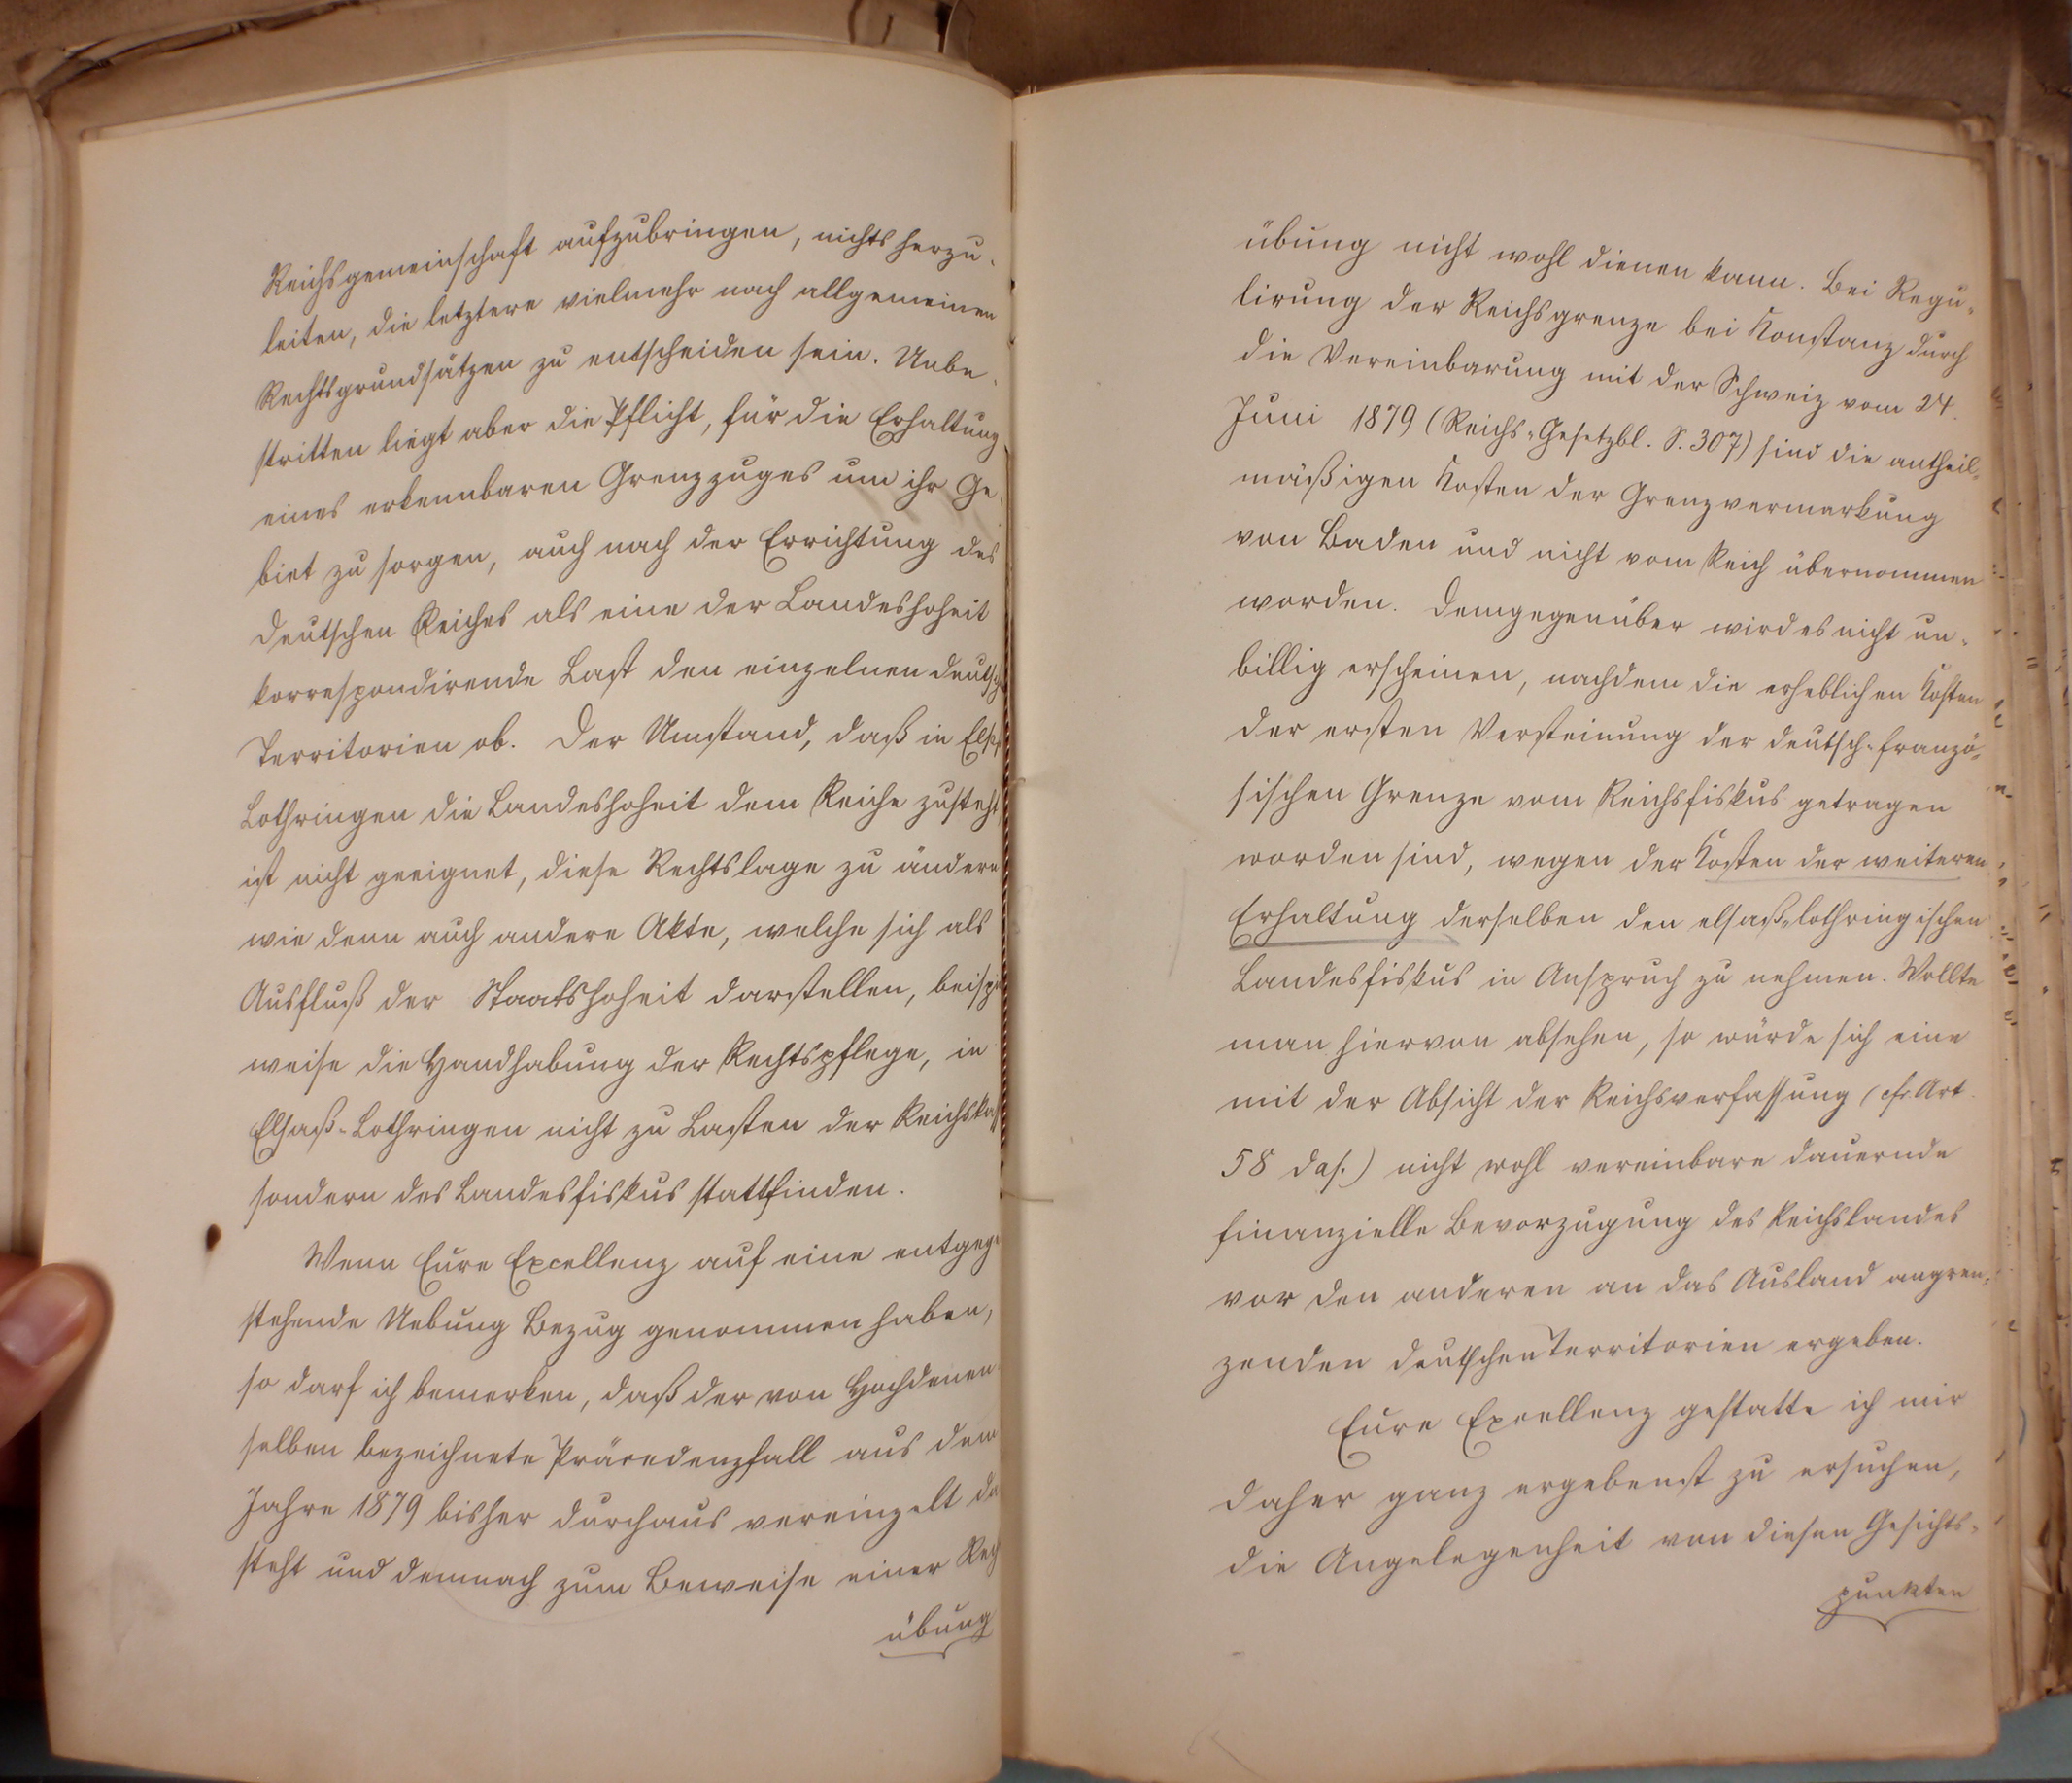 Reichsgemeinschaft aufzubringen, nichts herzu-
leiten, die letztere vielmehr nach allgemeinen
Rechtsgrundsätzen zu entscheiden sein. Unbe-
stritten liegt aber die Pflicht, für die Erhaltung
eines erkennbaren Grenzzuges um ihr Ge-
biet zu sorgen, auch nach der Errichtung des
deutschen Reiches als eine der Landeshoheit
korrespondirende Last den einzelnen deutsch
Territorien ob. Der Umstand, daß in Elsaß
Lothringen die Landeshoheit dem Reiche zusteht
ist nicht geeignet, diese Rechtslage zu ändern
wie denn auch andere Akte, welche sich als
Ausfluß der Staatshoheit darstellen, beispi
weise die Handhabung der Rechtspflege, in
Elsaß-Lothringen nicht zu Lasten der Reichskass
sondern des Landesfiskus stattfinden.
Wenn Eure Excellenz auf eine entgege
stehende Uebung Bezug genommen haben,
so darf ich bemerken, daß der von Hochdenen-
selben bezeichnete Präcedenzfall aus dem
Jahre 1879 bisher durchaus vereinzelt da
steht und demnach zum Beweise einer Rech
übung
übung nicht wohl dienen kann. Bei Regu-
lirung der Reichsgrenze bei Konstanz durch
die Vereinbarung mit der Schweiz vom 24.
Juni 1879 (Reichs-Gesetzbl. S. 307) sind die antheil-
mäßigen Kosten der Grenzvermarkung
von Baden und nicht vom Reich übernommen
worden. Demgegenüber wird es nicht un-
billig erscheinen, nachdem die erheblichen Kosten
der ersten Versteinung der deutsch-franzö-
sischen Grenze vom Reichsfiskus getragen
worden sind, wegen der Kosten der weiteren
Erhaltung derselben den elsaß-lothringischen
Landesfiskus in Anspruch zu nehmen. Wollte
man hiervon absehen, so würde sich eine
mit der Absicht der Reichsverfassung (cfr. Art.
58 das.) nicht wohl vereinbare dauernde
finanzielle Bevorzugung des Reichslandes
vor den anderen an das Ausland angren-
zenden deutschen Territorien ergeben.
Eure Excellenz gestatte ich mir
daher ganz ergebenst zu ersuchen,
die Angelegenheit von diesen Gesichts-
punkten